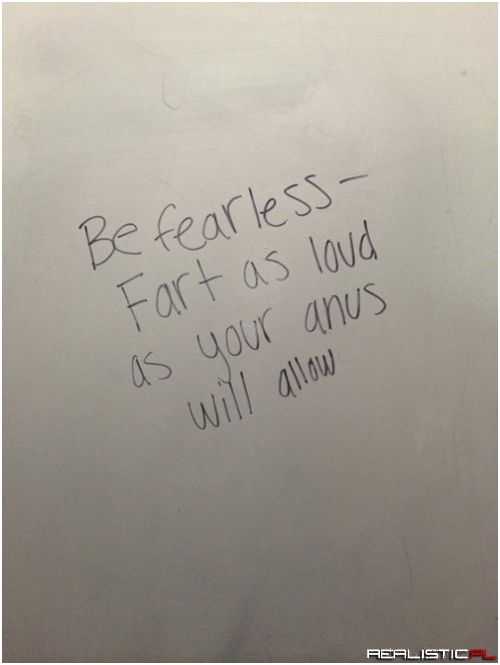 Be fearless-
Fart as loud
as your anus
will allow
REALISTICAL